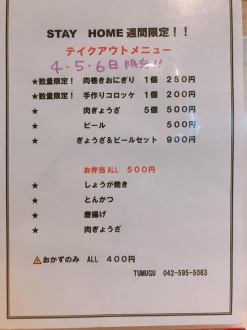 STAY HOME 週間限定！！
テイクアウトメニュー
4.5.6日限定!!
★数量限定！ 肉巻きおにぎり 1個 250円
★数量限定！ 手作りコロッケ 1個 200円
★ 肉ぎょうざ 5個 500円
★ ビール 500円
★ ぎょうざ＆ビールセット 900円
お弁当ALL 500円
★ しょうが焼き
★ とんかつ
★ 唐揚げ
★ 肉ぎょうざ
⚠おかずのみ ALL 400円
TUMUGU 042-595-5063